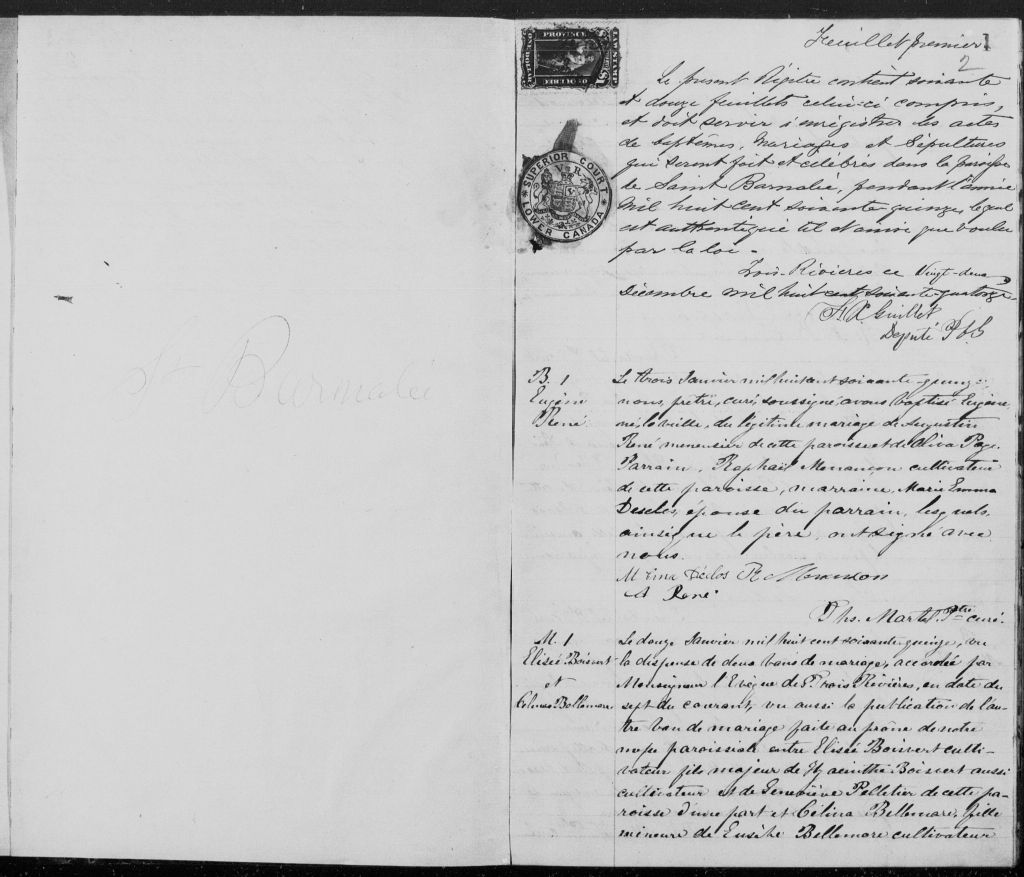 St Barnabé
PROVINCE
OF QUEBEC
SUPERIOR COURT
LOWER CANADA
V R
Feuillet premier 1
2
Le present Régitre contient soixante
et douze feuillets celui-ci compris,
et doit servir à enrégistrer les actes
de baptêmes, Mariages et Sépultures
qui seront fait et célébrés dans la paroisse
de Saint Barnabé, pendant l'année
Mil huit cent soixante quinze, lequel
est authentiqué tel et ainsi que voulu
par la loi -
Trois-Rivieres ce Vingt-deux
Décembre mil huit cent soixante-quatorze
Guillet
Deputé P S C
B. 1
Eugène
René
Le trois Janvier mil huit cent soixante-quinze,
nous, prêtre, curé, soussigné, avons baptisé Eugène
né, la veille, du légitime mariage de Augustin
René menuisier de cette paroisse et de Oliva Page.
Parrain, Raphaël Menançon cultivateur
de cette paroisse, marraine, Marie Emma
épouse du parrain, lesquels,
ainsi que le père, ont signé avec
nous.
M Ema Déclos R Menanson
A René
Ths. Martel Ptre curé.
M. 1
Elisée Boisvert
et
Célina Bellemare
Le douze Janvier mil huit cent soixante-quinze, vu
la dispense de deux bans de mariage, accordée par
Monseigneur l'Evêque des Trois Rivières, en date du
sept du courant, vu aussi la publication de l'au-
tre ban de mariage faite au prône de notre
messe paroissiale entre Elisée Boisvert culti-
vateur fils majeur de Hyacinthe Boisvert aussi
cultivateur et de Geneviève Pelletier de cette pa-
roisse d'une part et Célina Bellemare, fille
mineure de Eusèbe Bellemare cultivateur